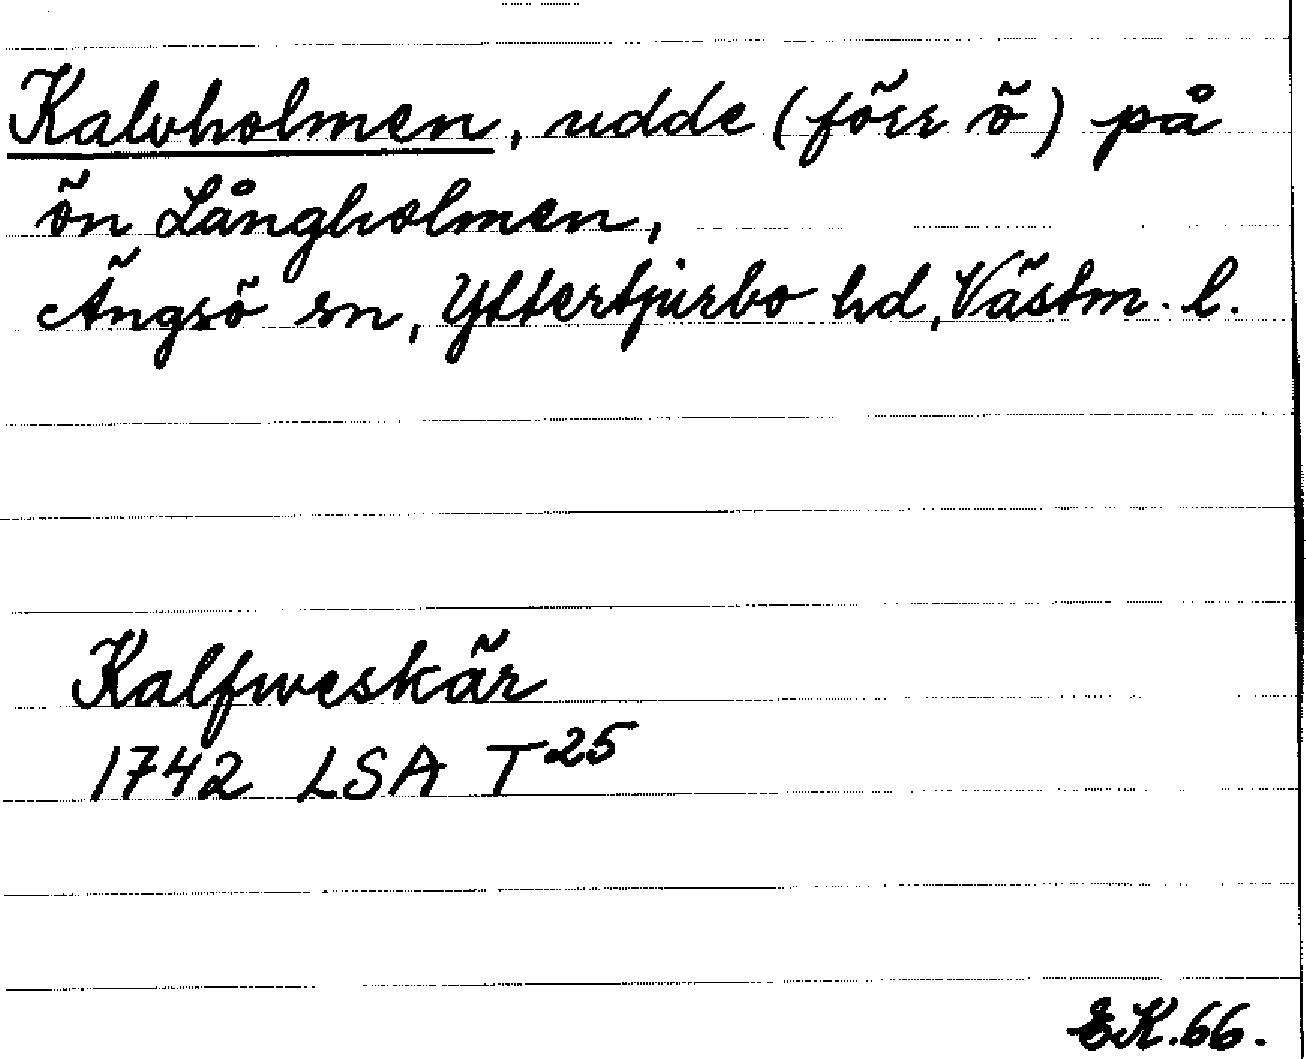 Kalvholmen, udde (förr ö) på
ön Långholmen,
Ängsö sn, Yttertjurbo hd, Västm. l.
Kalfweskär
1742 LSA T 25
EK.66.